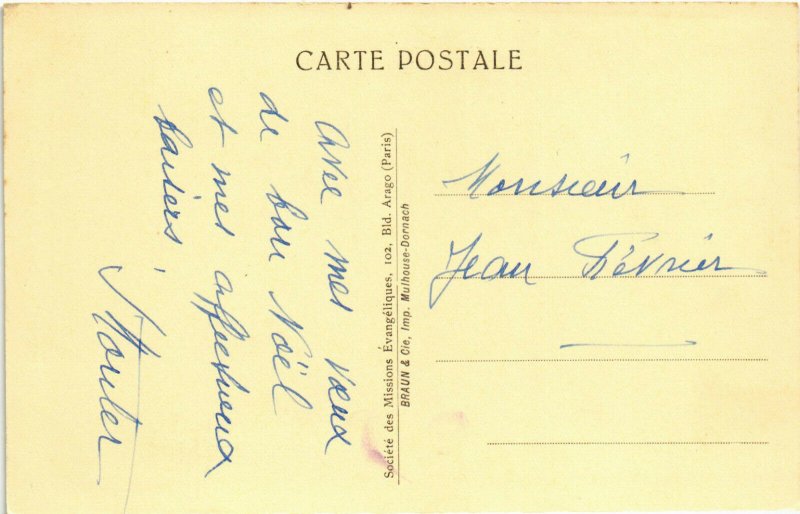 CARTE POSTALE
Avec mes vœux
de bon Noël
et mes affectueux
baisers
Société des Missions Évangéliques, 102, Bld. Arago (Paris)
BRAUN & Cie, Imp. Mulhouse-Dornach
Monsieur
Jean Février